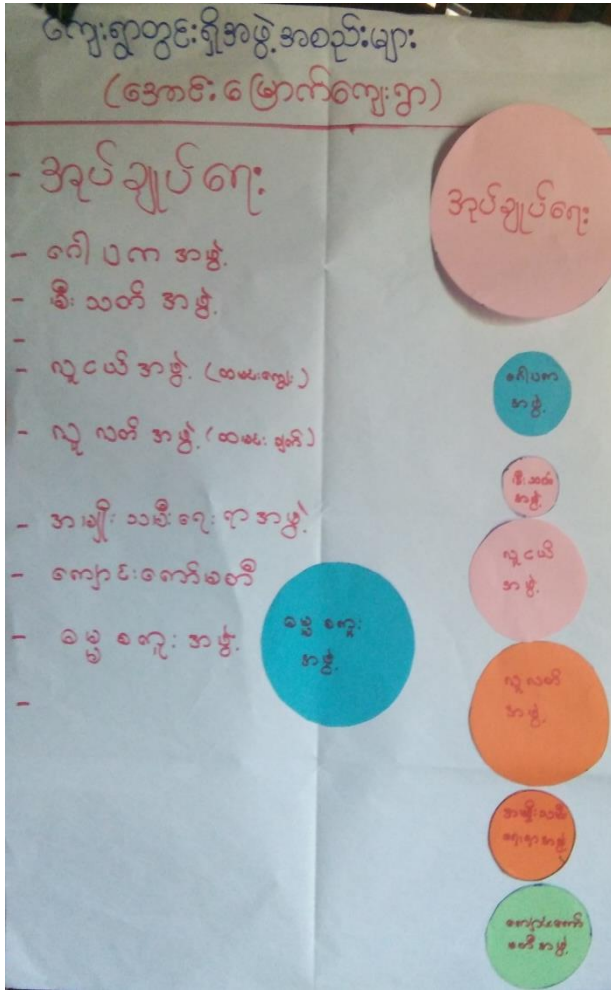 ကျေးရွာတွင်းရှိအဖွဲ့အစည်းများ
(အောင်းမြောက်ကျေးရွာ)
- အုပ်ချုပ်ရေး
- ဂေါပကအဖွဲ့
- မီးသတ်အဖွဲ့
-
- လူငယ်အဖွဲ့ (ထမင်းကျွေး)
- လူလတ်အဖွဲ့ (ထမင်းချက်)
- အမျိုးသမီးရေးရာအဖွဲ့
- ကျောင်းကော်မတီ
- ဓမ္မစကူးအဖွဲ့
-
ဓမ္မစကူး
အဖွဲ့
အုပ်ချုပ်ရေး
ဂေါပက
အဖွဲ့
မီးသတ်
အဖွဲ့
လူငယ်
အဖွဲ့
လူလတ်
အဖွဲ့
အမျိုးသမီး
ရေးရာအဖွဲ့
ကျောင်းကော်
မတီအဖွဲ့